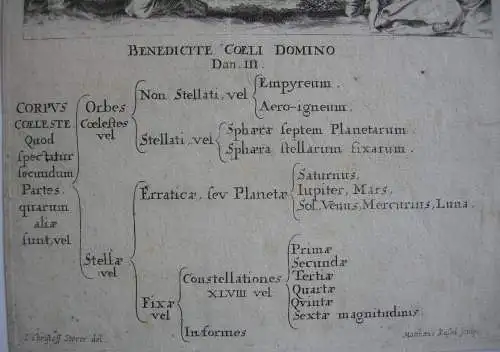 BENEDICITE COELI DOMINO
Dan. III.
CORPVS
COELESTE
Quod
spectatur
secundum
Partes.
quarum
aliæ
sunt, vel
Orbes
Cœlestes
vel
Non Stellati, vel
Empyreum.
Aero-igneum.
Stellati, vel
Sphæra septem Planetarum.
Sphæra stellarum fixarum.
Stellæ
vel
Erraticæ, seu Planetæ
Saturnus,
Iupiter, Mars.
Sol. Venus, Mercurius, Luna.
Fixæ
vel
Constellationes
XLVIII vel
Primæ
Secundæ
Tertiæ
Quartæ
Qvintæ
Sextæ magnitudinis.
Informes
I. Christoff Storer del.
Matthæus Küsel sculps.